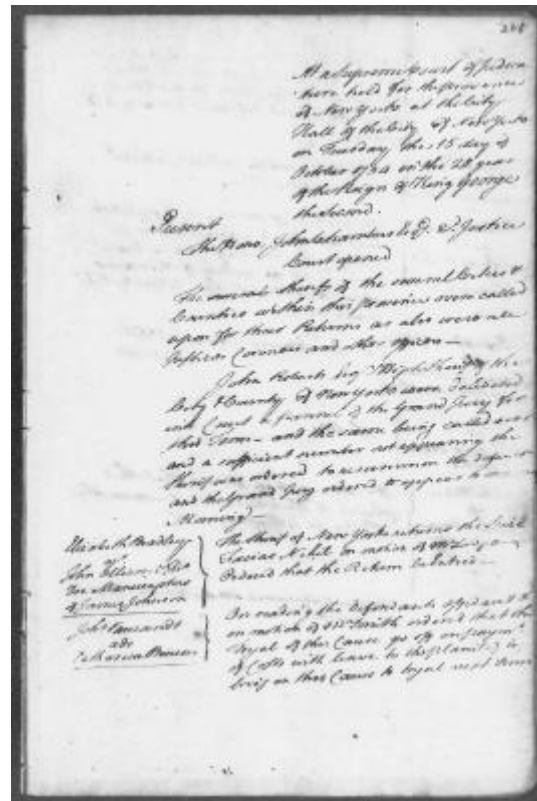 At a Supream Court of Judica
ture held for the Province
of New York at the City
Hall of the City of New York
on Tuesday the 15 day of
October 1754 in the 28 year
of the Reign of King George
the Second.
Present
The Hono John Chambers Esq. 2d Justice
Court opened
The several Sheriffs of the several Cities &
Counties within this Province were called
upon for their Returns as also were all
Justices Coroners and other officers
John Roberts Esq High Sheriff of the
City & County of New York delivered
into Court a pannel of the Grand Jury for
this Term and the same being called over
and a sufficient number not appearing the
Sheriff was ordered to summon the
and the Grand Jury ordered to appear
Morning
Elizabeth Bradley
vs
John Ellison
The Manucaptors
of Johnson
The Sheriff of New York returns the Scire
Facias Nihil on motion of Mr
Ordered that the Return be Entered
John
ads
Catharine
On reading the Defendants affidavit &
on motion of Mr Smith ordered that the
Tryal of this Cause go off on paymt
of Costs with leave to the plaintif to
bring on this Cause to tryal next Term